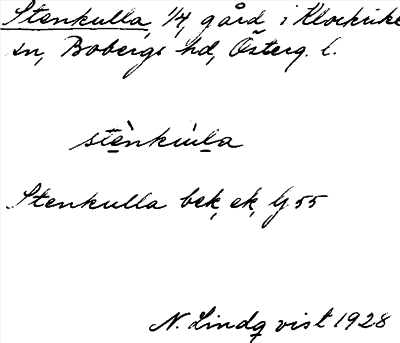 Stenkulla, 1/4, gård i Klockrike
sn, Bobergs hd, Österg. l.
stènkùla
Stenkulla bek, ek, Gj 55
N. Lindqvist 1928